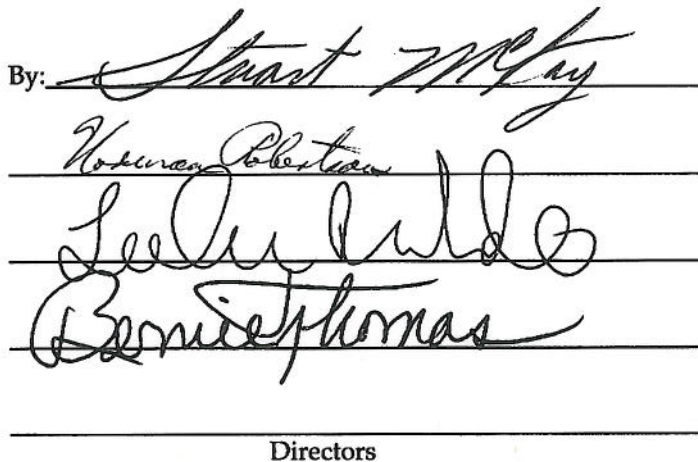 By: Stuart McKay
Norman Robertson
Bernice Thomas
Directors